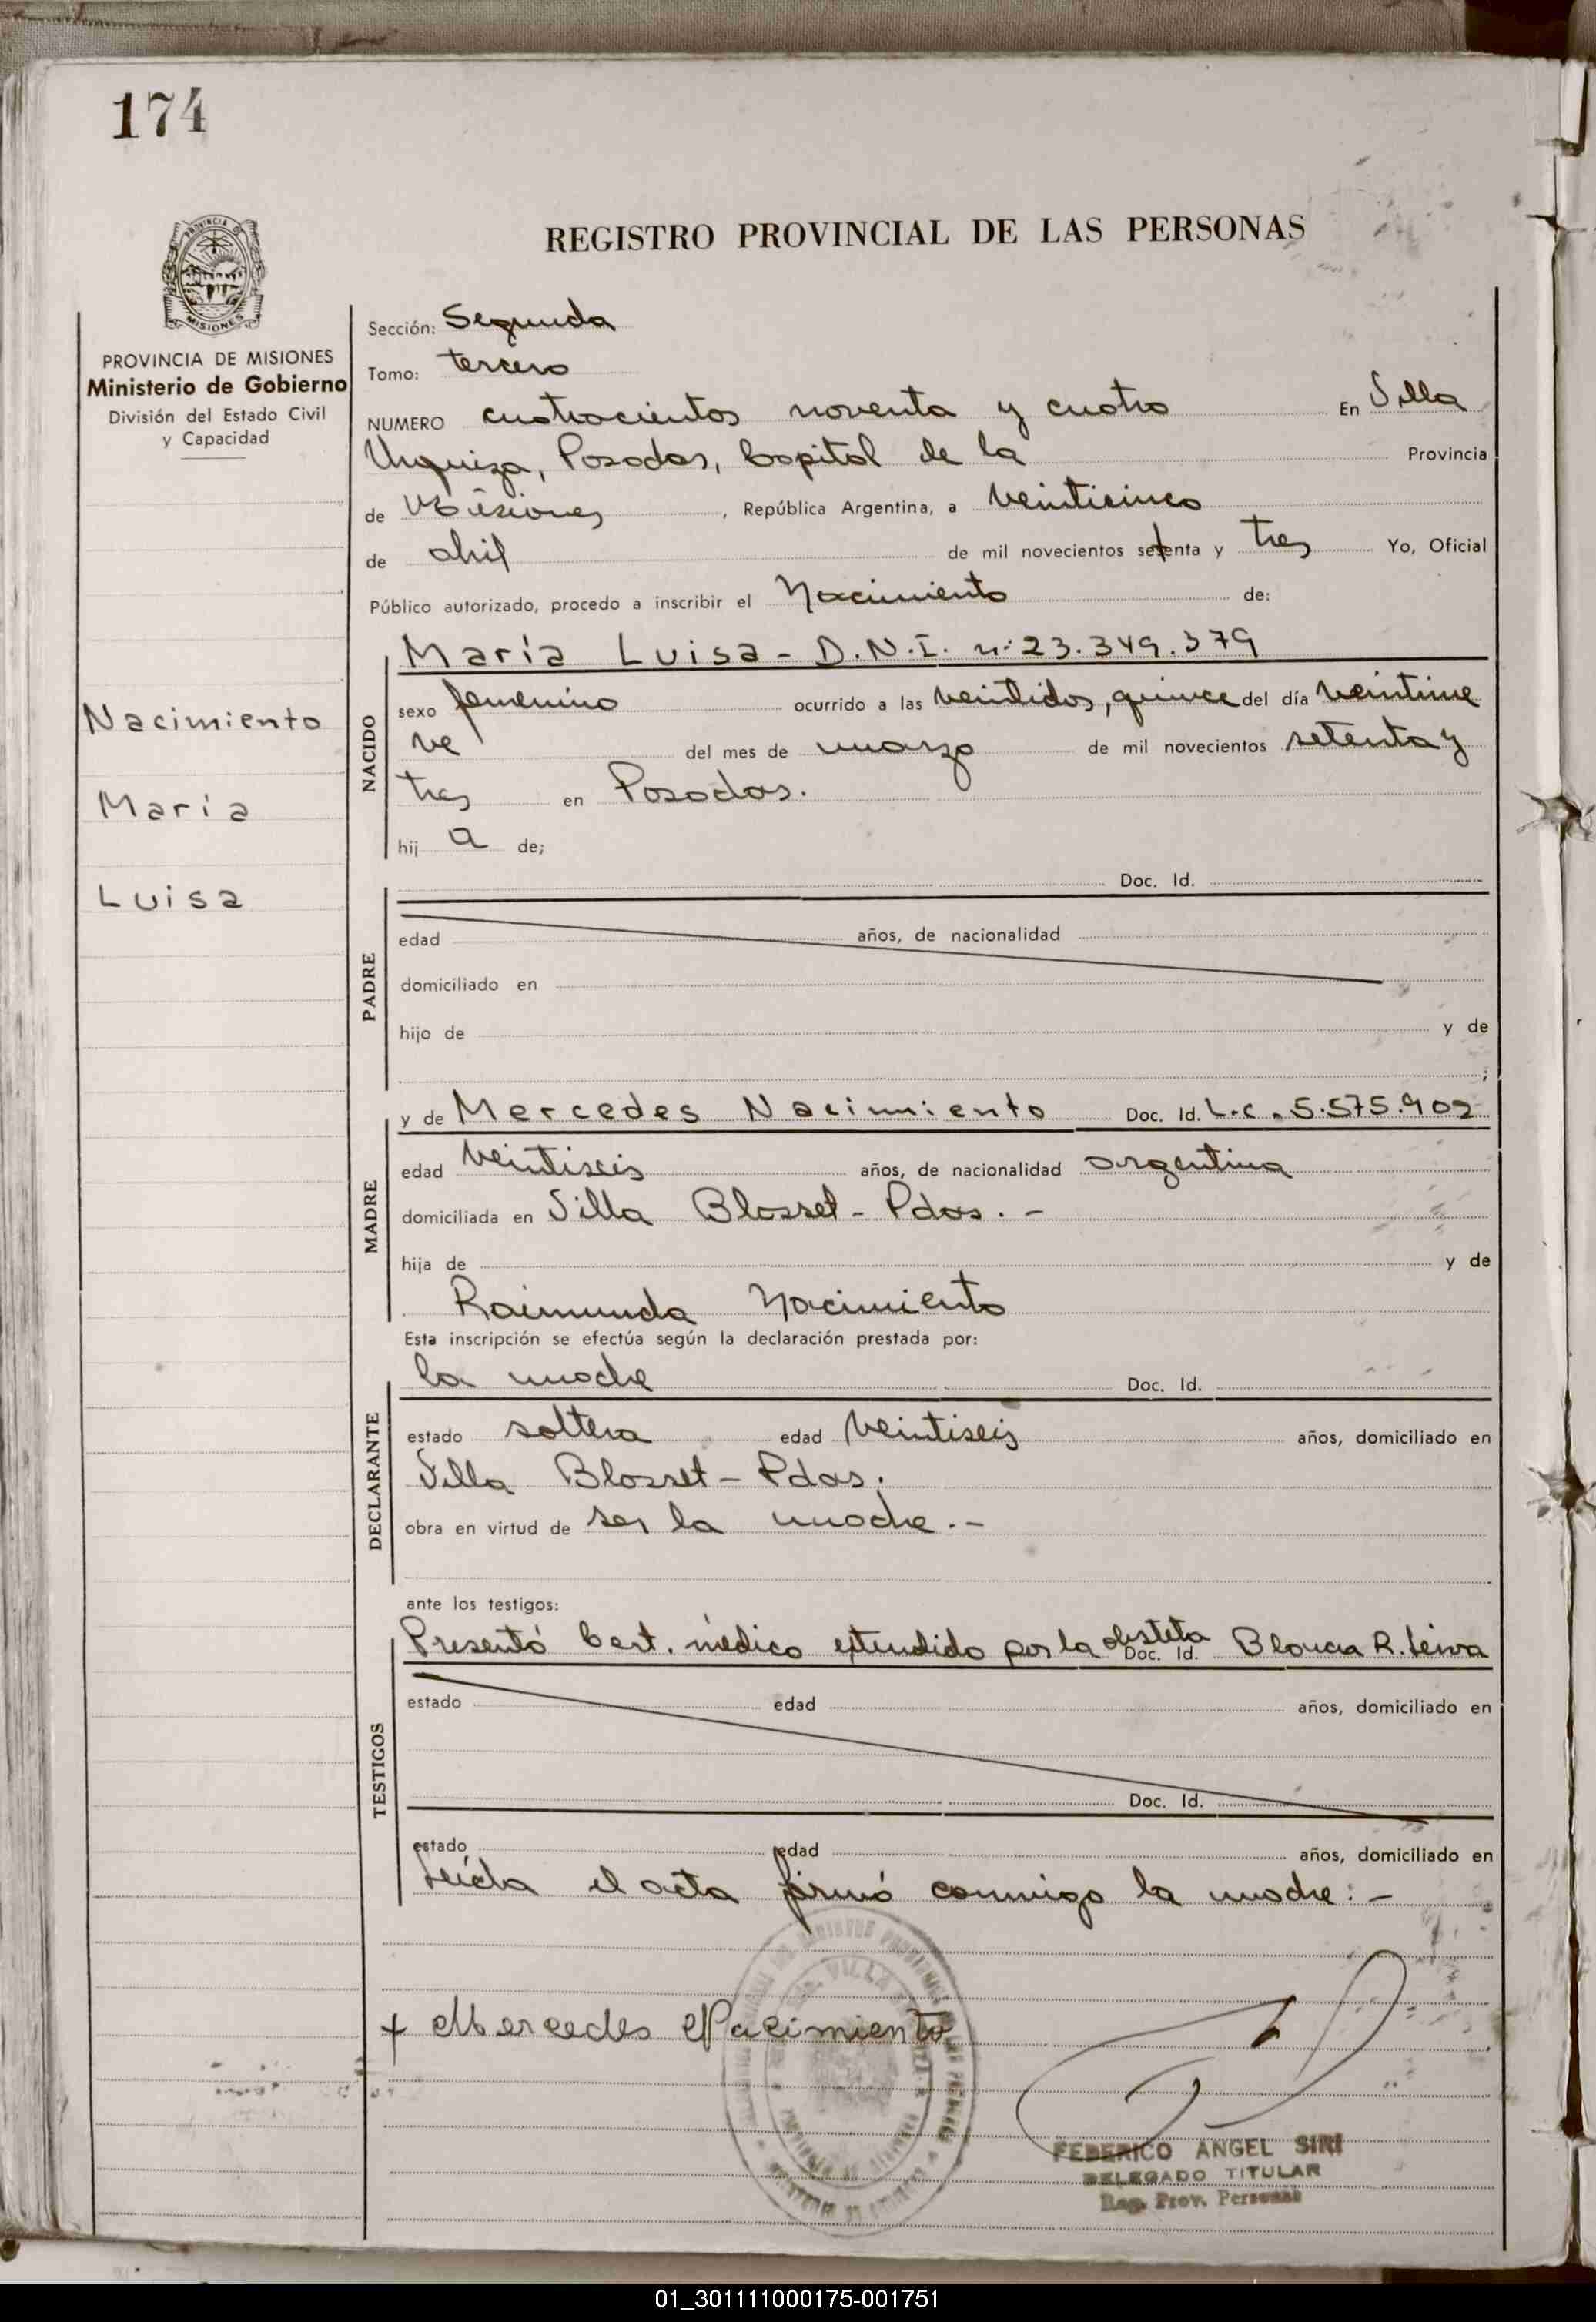 174
REGISTRO PROVINCIAL DE LAS PERSONAS
MISIONES
PROVINCIA DE MISIONES
Ministerio de Gobierno
División del Estado Civil
y Capacidad
Nacimiento
María
Luisa
Sección: Segunda
Tomo: tercero
NUMERO cuatrocientos noventa y cuatro En Villa
Urquiza, Posadas, Capital de la Provincia
de Misiones, República Argentina, a veinticinco
de abril de mil novecientos setenta y tres Yo, Oficial
Público autorizado, procedo a inscribir el Nacimiento de:
NACIDO
María Luisa - D.N.I. n: 23.349.379
sexo femenino ocurrido a las veintidos, quince del día veintinue
ve del mes de marzo de mil novecientos setenta y
tres en Posadas.
hij a de;
PADRE
Doc. Id.
edad años, de nacionalidad
domiciliado en
hijo de y de
;
MADRE
y de Mercedes Nacimiento Doc. Id. L.C. 5.575.902
edad veintiseis años, de nacionalidad argentina
domiciliada en Villa Blosset - Pdas. -
hija de y de
Raimunda Nacimiento
Esta inscripción se efectúa según la declaración prestada por:
DECLARANTE
la madre Doc. Id.
estado soltera edad veintiseis años, domiciliado en
Villa Blosset - Pdas.
obra en virtud de ser la madre. -
ante los testigos:
TESTIGOS
Presentó Cert. médico extendido por la obsteta Doc. Id. Blanca R. Leiva
estado edad años, domiciliado en
Doc. Id.
estado edad años, domiciliado en
Leída el acta firmó conmigo la madre: -
+ Mercedes Nacimiento
FEDERICO ANGEL SIRI
DELEGADO TITULAR
Reg. Prov. Personas
01_301111000175-001751